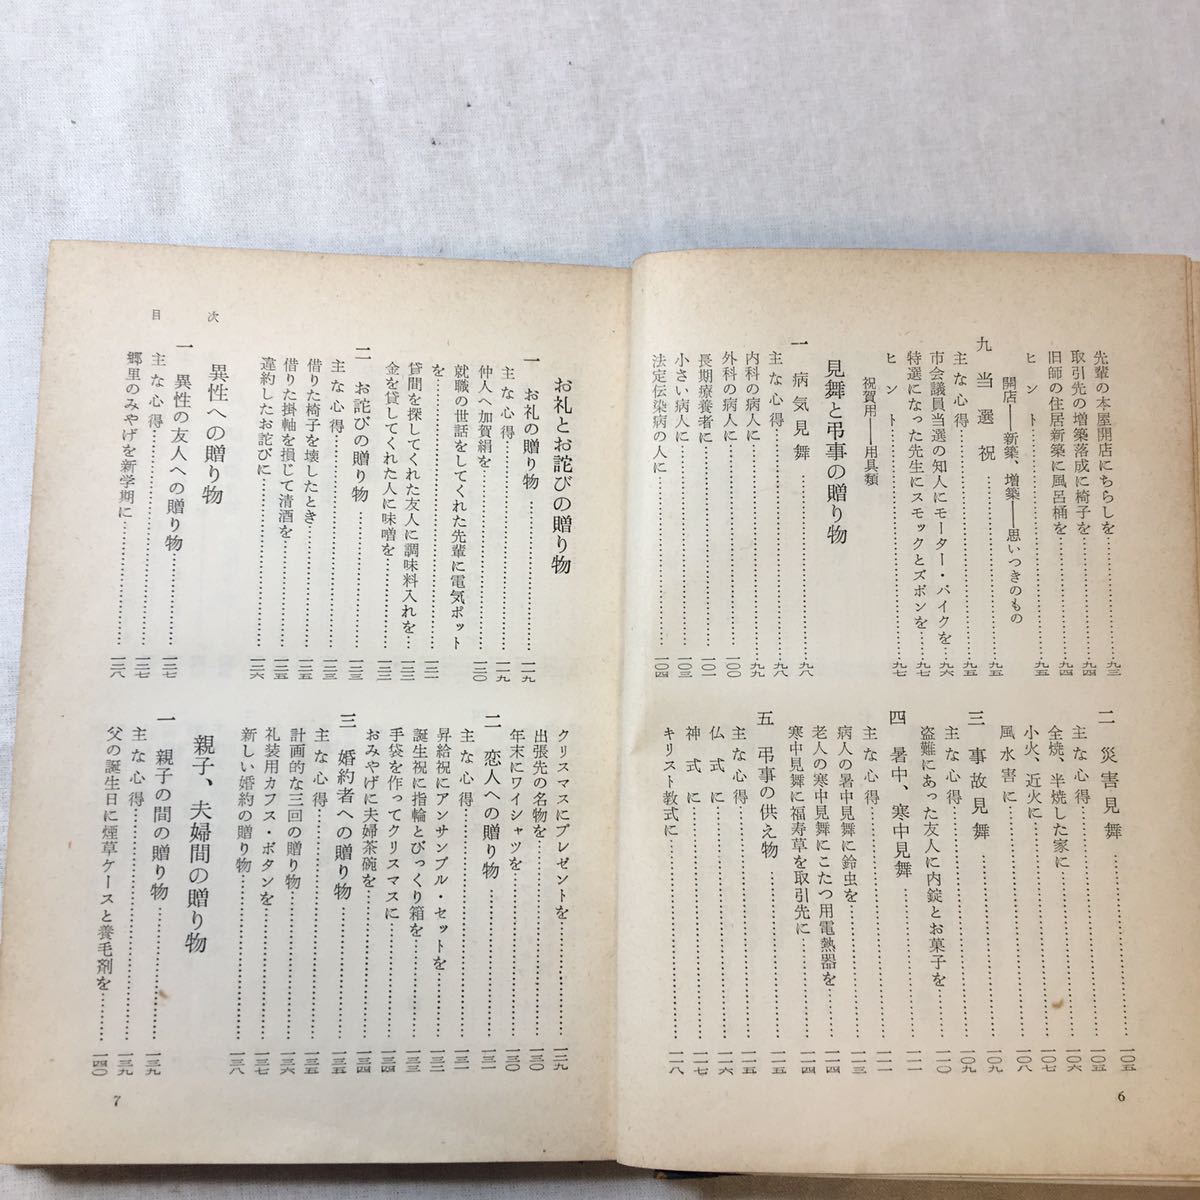 先輩の本屋開店にちらしを……九三
取引先の増築落成に椅子を……九四
旧師の住居新築に風呂桶を……九四
ヒント……九五
開店――新築、増築――思いつきのもの
九 当選祝……九五
主な心得……九五
市会議員当選の知人にモーター・バイクを……九六
特選になった先生にスモックとズボンを……九七
ヒント……九七
祝賀用――用具類
見舞と弔事の贈り物
一 病気見舞……九八
主な心得……九八
内科の病人に……九九
外科の病人に……一〇〇
長期療養者に……一〇一
小さい病人に……一〇三
法定伝染病の人に……一〇四
二 災害見舞……一〇五
主な心得……一〇五
全焼、半焼した家に……一〇六
小火、近火に……一〇七
風水害に……一〇八
三 事故見舞……一〇九
主な心得……一〇九
盗難にあった友人に内錠とお菓子を……一一〇
四 暑中、寒中見舞……一一一
主な心得……一一一
病人の暑中見舞に鈴虫を……一一二
老人の寒中見舞にこたつ用電熱器を……一一四
寒中見舞に福寿草を取引先に……一一四
五 弔事の供え物……一一五
主な心得……一一五
仏式に……一一六
神式に……一一七
キリスト教式に……一一八
6
目次
お礼とお詫びの贈り物
一 お礼の贈り物……一一九
主な心得……一一九
仲人へ加賀絹を……一二〇
就職の世話をしてくれた先輩に電気ポット
を……一二一
貸間を探してくれた友人に調味料入れを……一二二
金を貸してくれた人に味噌を……一二三
二 お詫びの贈り物……一二三
主な心得……一二三
借りた椅子を壊したとき……一二五
借りた掛軸を損じて清酒を……一二五
違約したお詫びに……一二六
異性への贈り物
一 異性の友人への贈り物……一二七
主な心得……一二七
郷里のみやげを新学期に……一二八
クリスマスにプレゼントを……一二九
出張先の名物を……一三〇
年末にワイシャツを……一三〇
二 恋人への贈り物……一三一
主な心得……一三一
昇給祝にアンサンブル・セットを……一三二
誕生祝に指輪とびっくり箱を……一三三
手袋を作ってクリスマスに……一三四
おみやげに夫婦茶碗を……一三四
三 婚約者への贈り物……一三五
主な心得……一三五
計画的な三回の贈り物……一三六
礼装用カフス・ボタンを……一三七
新しい婚約の贈り物……一三八
親子、夫婦間の贈り物
一 親子の間の贈り物……一三九
主な心得……一三九
父の誕生日に煙草ケースと養毛剤を……一四〇
7